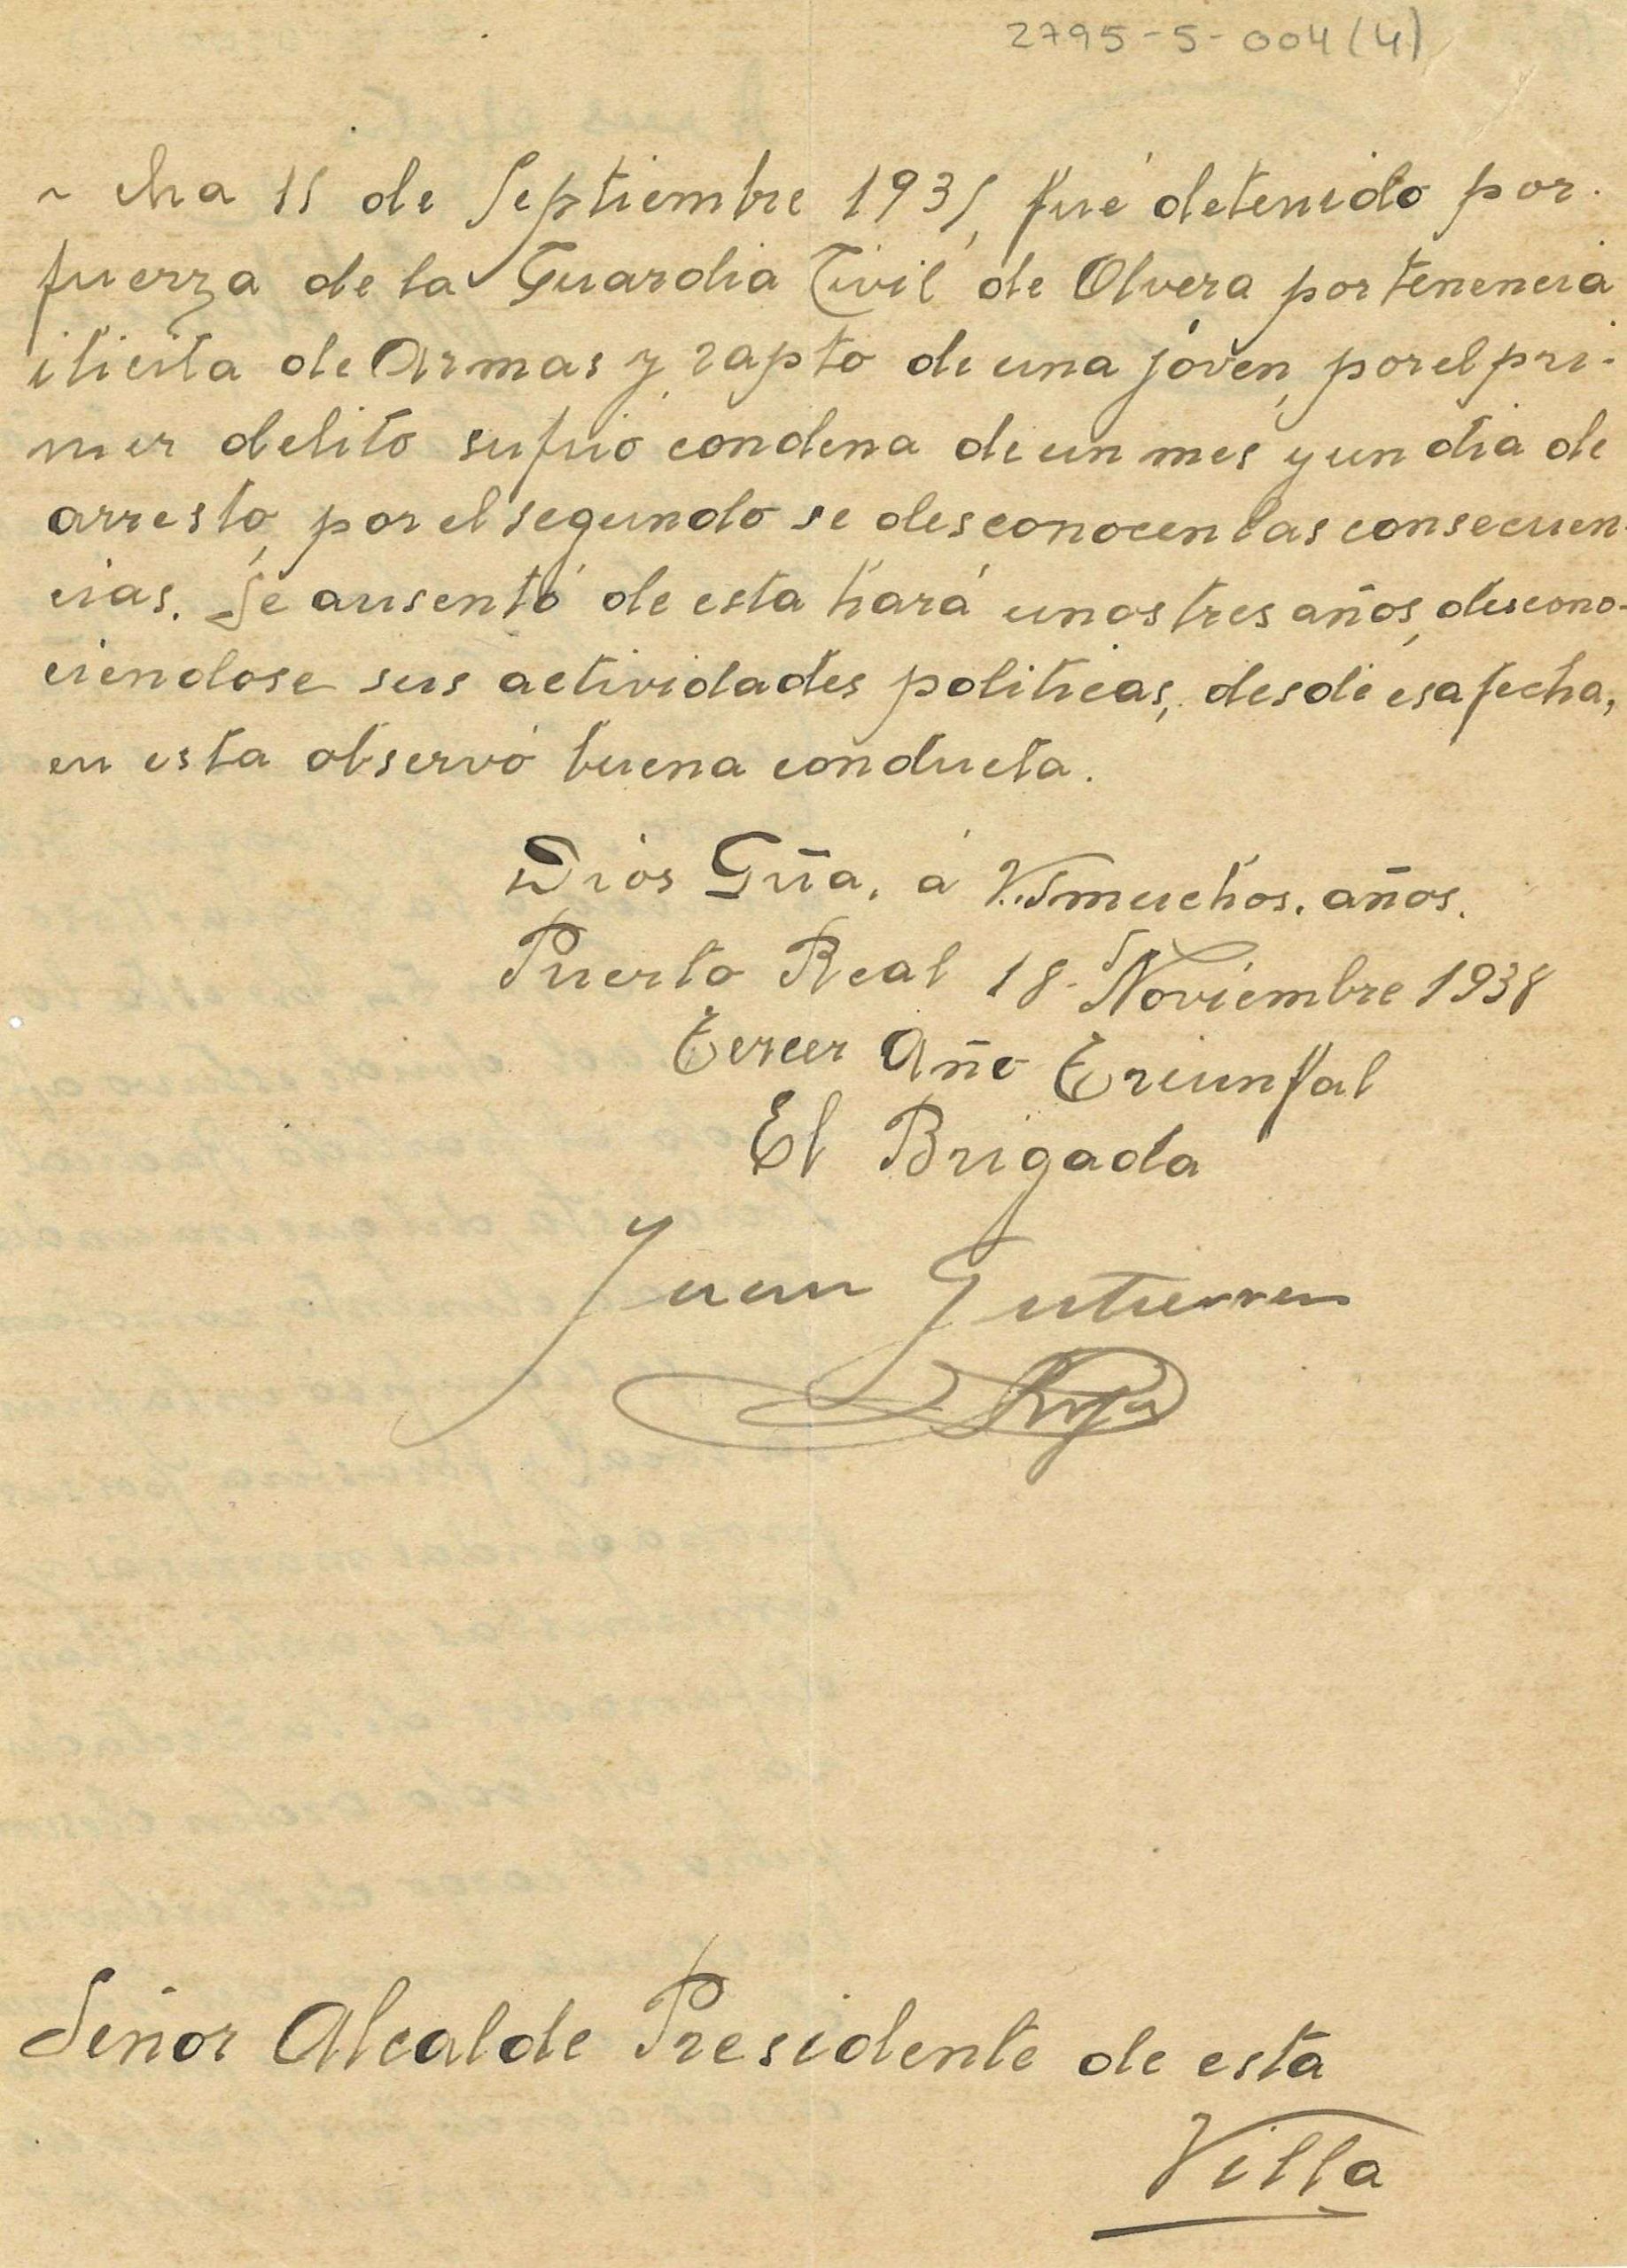 2795-5-004(4)
~ cha 15 de Septiembre 1935, fué detenido por
fuerza de la Guardia Civil de Olvera por tenencia
ilicita de Armas y rapto de una joven, por el pri-
mer delito sufrió condena de un mes y un dia de
arresto, por el segundo se desconocen las consecuen-
cias. Se ausentó de esta hará unos tres años, descono-
ciendose sus actividades politicas, desde esa fecha,
en esta observó buena conducta.
Dios Gũa. á V.S muchos. años.
Puerto Real 18 Noviembre 1938
Tercer Año Triunfal
El Brigada
Juan Gutierrez
Señor Alcalde Presidente de esta
Villa